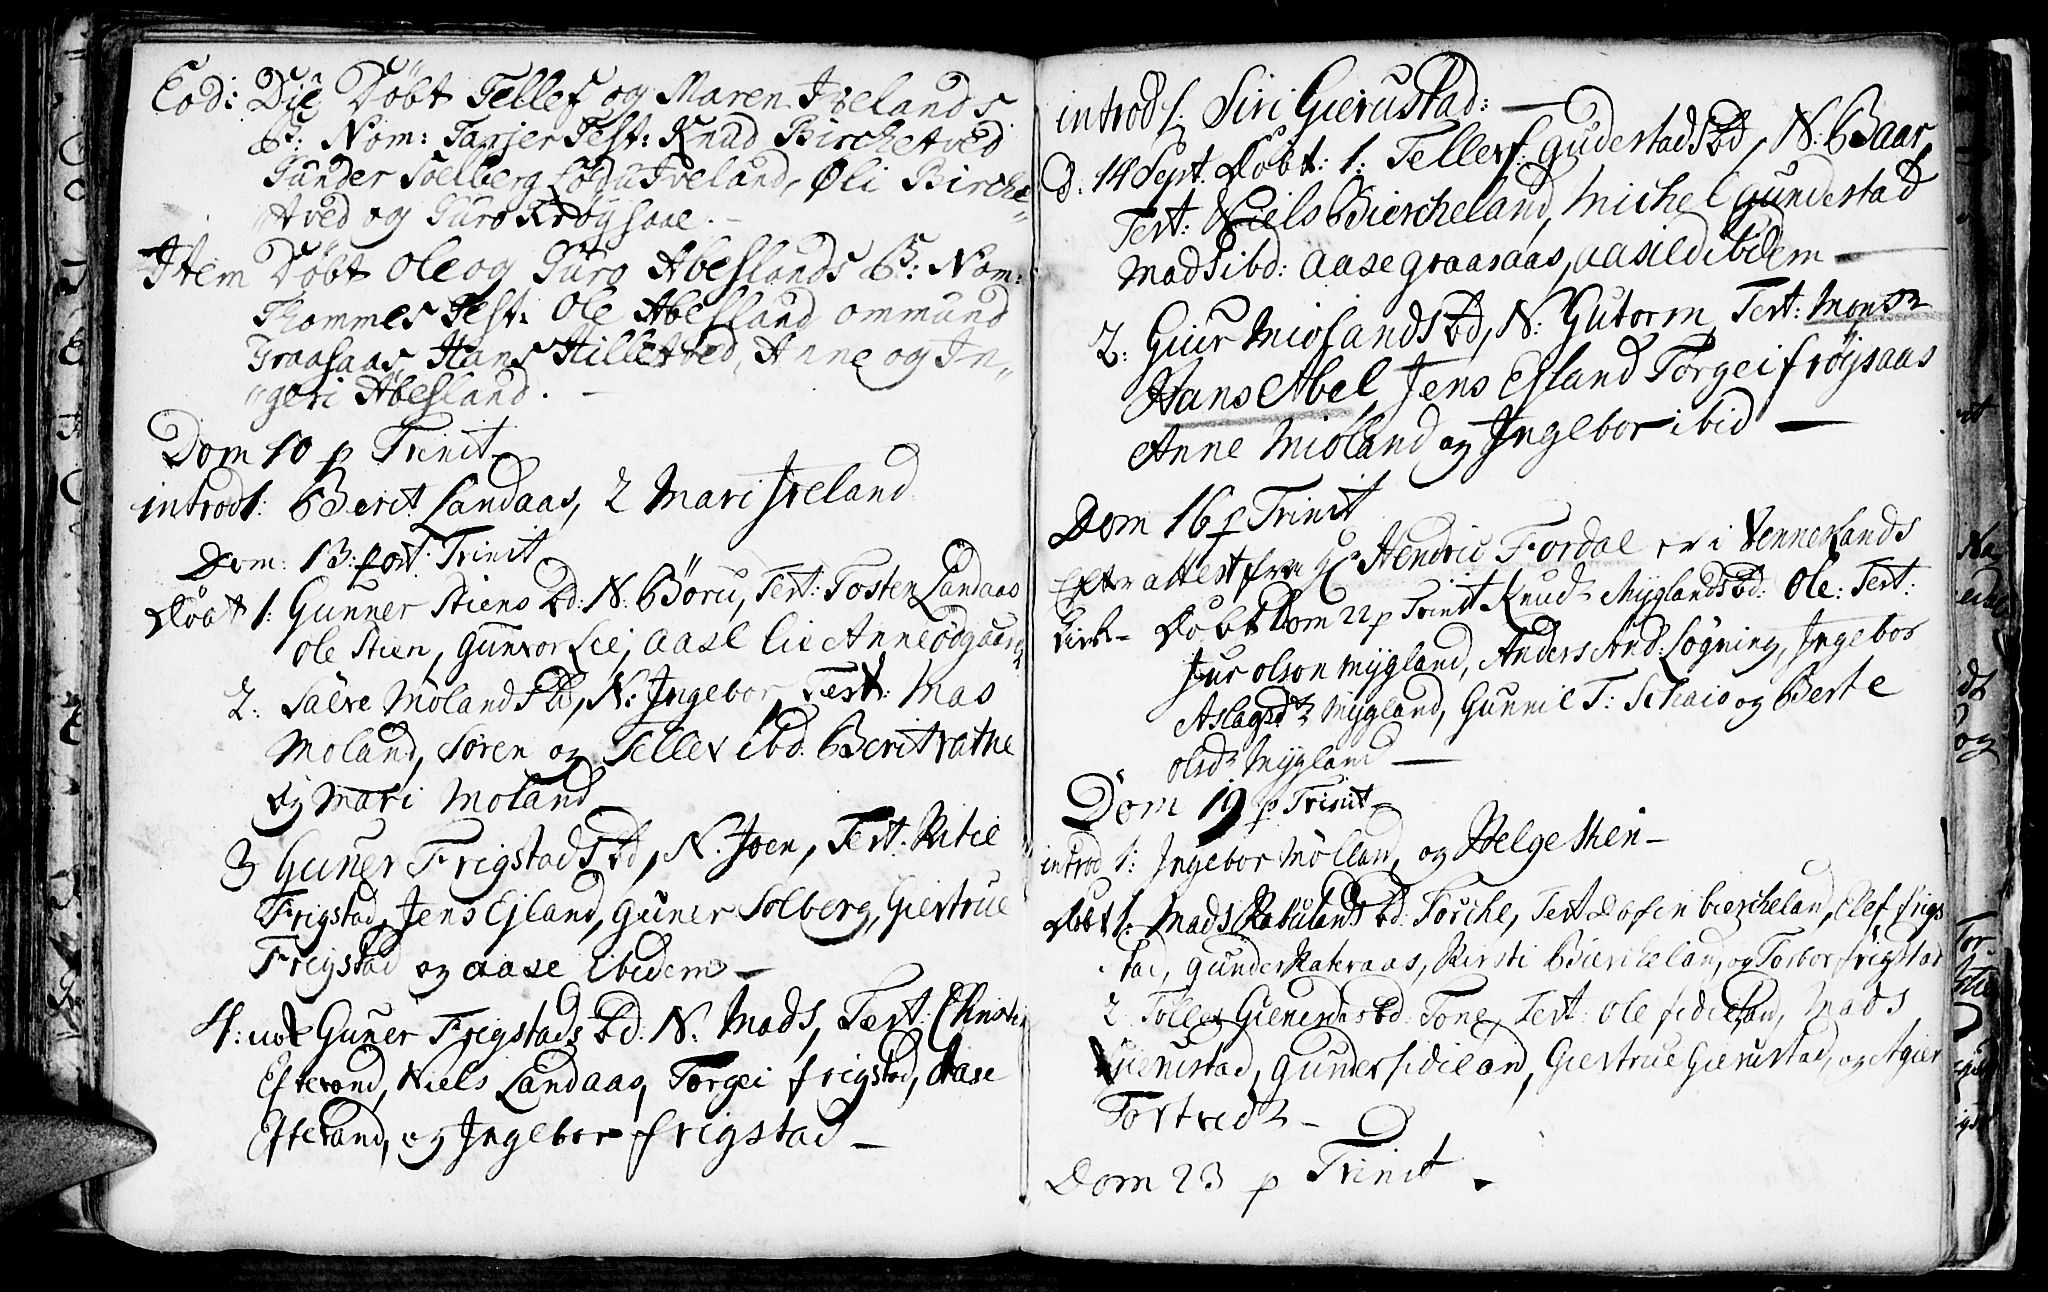 Eod: Die Døbt Tellef og Maren Ivelands
B: Nom: Tarjer Test: Knud Birchetved
Gunder Soelberg Iveland, Øli Birche„
tved og Guro Krøysaae. –
Item Døbt Ole og Guro Abeslands B: Nom:
Thommes Test: Ole Abesland ommund
Graasaas, Hans Hilletved, Anne og In„
„geri Abesland. –
Dom 10 p Trinit
introd 1: Berit Landaas, 2 Mari Iveland
Dom: 13: post: Trinit
Døbt 1: Gunner Stiens bd: N: Børu, Test: Tosten Landaas
Ole Stien, Gunvor Lie, Aase Lie Anne ødgaard
2: Salve Molands bd, N: Ingebor, Test: Mas
Moland, Søren og Tellev ibd. Berit
og Mari Moland
3 Guner Frigstads bd, N: Joen, Test: Kitil
Frigstad, Jens Ejland, Guner Solberg, Giertrue
Frigstad og Aase ibidem –
4: Guner Frigstads bd. N. Mads, Test: Christi
Niels Landaas, Torgei frigstad, Aase
og Ingebor frigstad –
introd 1: Siri Gierustad: –
d. 14 Sept. Døbt: 1: Tellev gudestads bd, N. Baar
Test: Niels Biercheland, Michel gundestad
Mads ibd: Aase graasaas, aasild ibidem –
2: Giur Miolands bd, N: Gutorm, Test: Monsr
Hans Abel, Jens Esland Torgei frøysaas
Anne Mioland og Ingebor ibid –
Dom 16 p Trinit
Efter attest fra Hr Hendric Fordal er i Vennelands
Kirk– Døbt Dom 22 p Trinit Knud Myglands bd: Ole: Test:
Jur olson mygland, Anders And: Løgning, Ingebor
Aslagsdr Mygland, Gunnil T: Schaio og Berte
olsdr Mygland –
Dom 19 p Trinit
introd 1: Ingebor Mølland, og Helge Stien –
Døbt 1: Mads Rabulands bd: Torche, Test biercheland, Elef frigs
tad, gunder Kateraas, Kirsti Bierkeland, og Torbor frigstad
2 Tollev bd: Tone, Test: Ole fidieland, Mads
Gierustad, gunder fidieland, Giertrue Gierustad, og Agier
Tortved –
Dom 23 p Trinit.